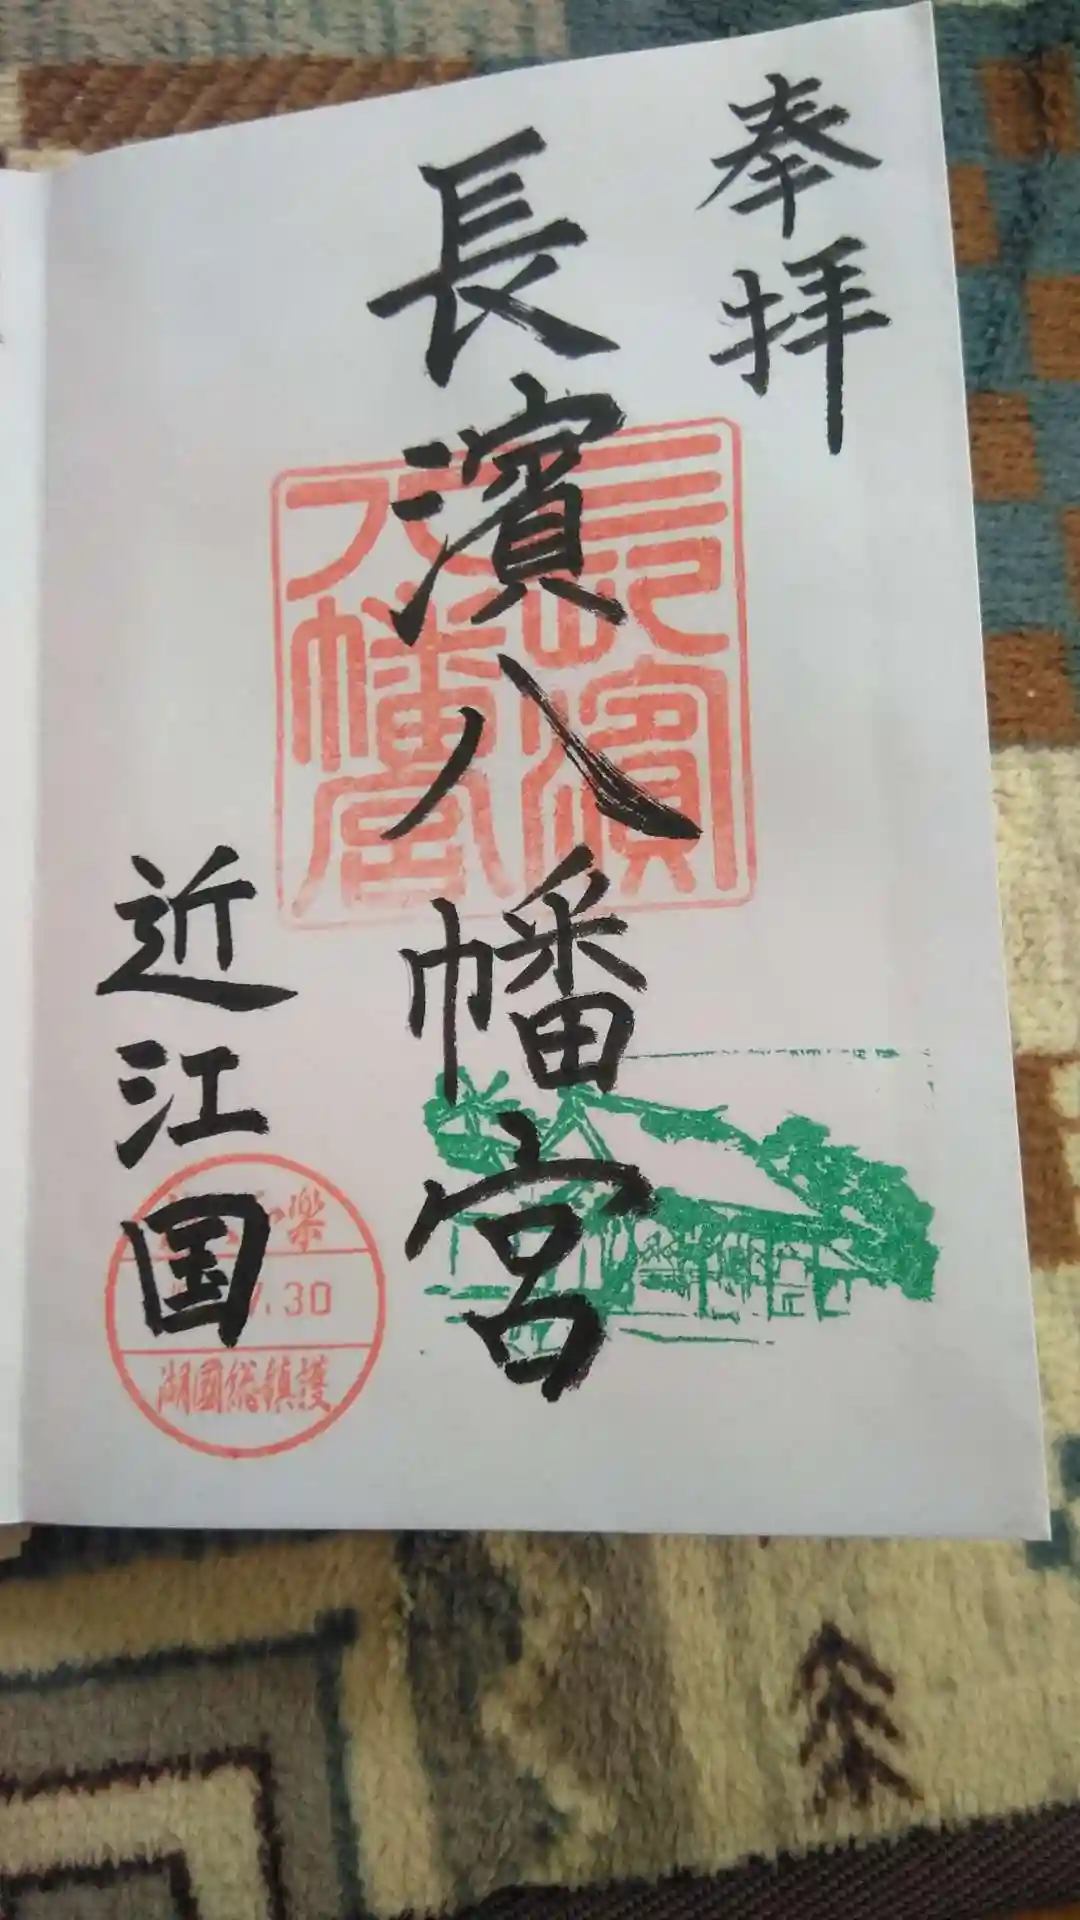 奉拝
長濱八幡宮
長濱
八幡宮
近江国
楽
7.30
湖國総鎮護